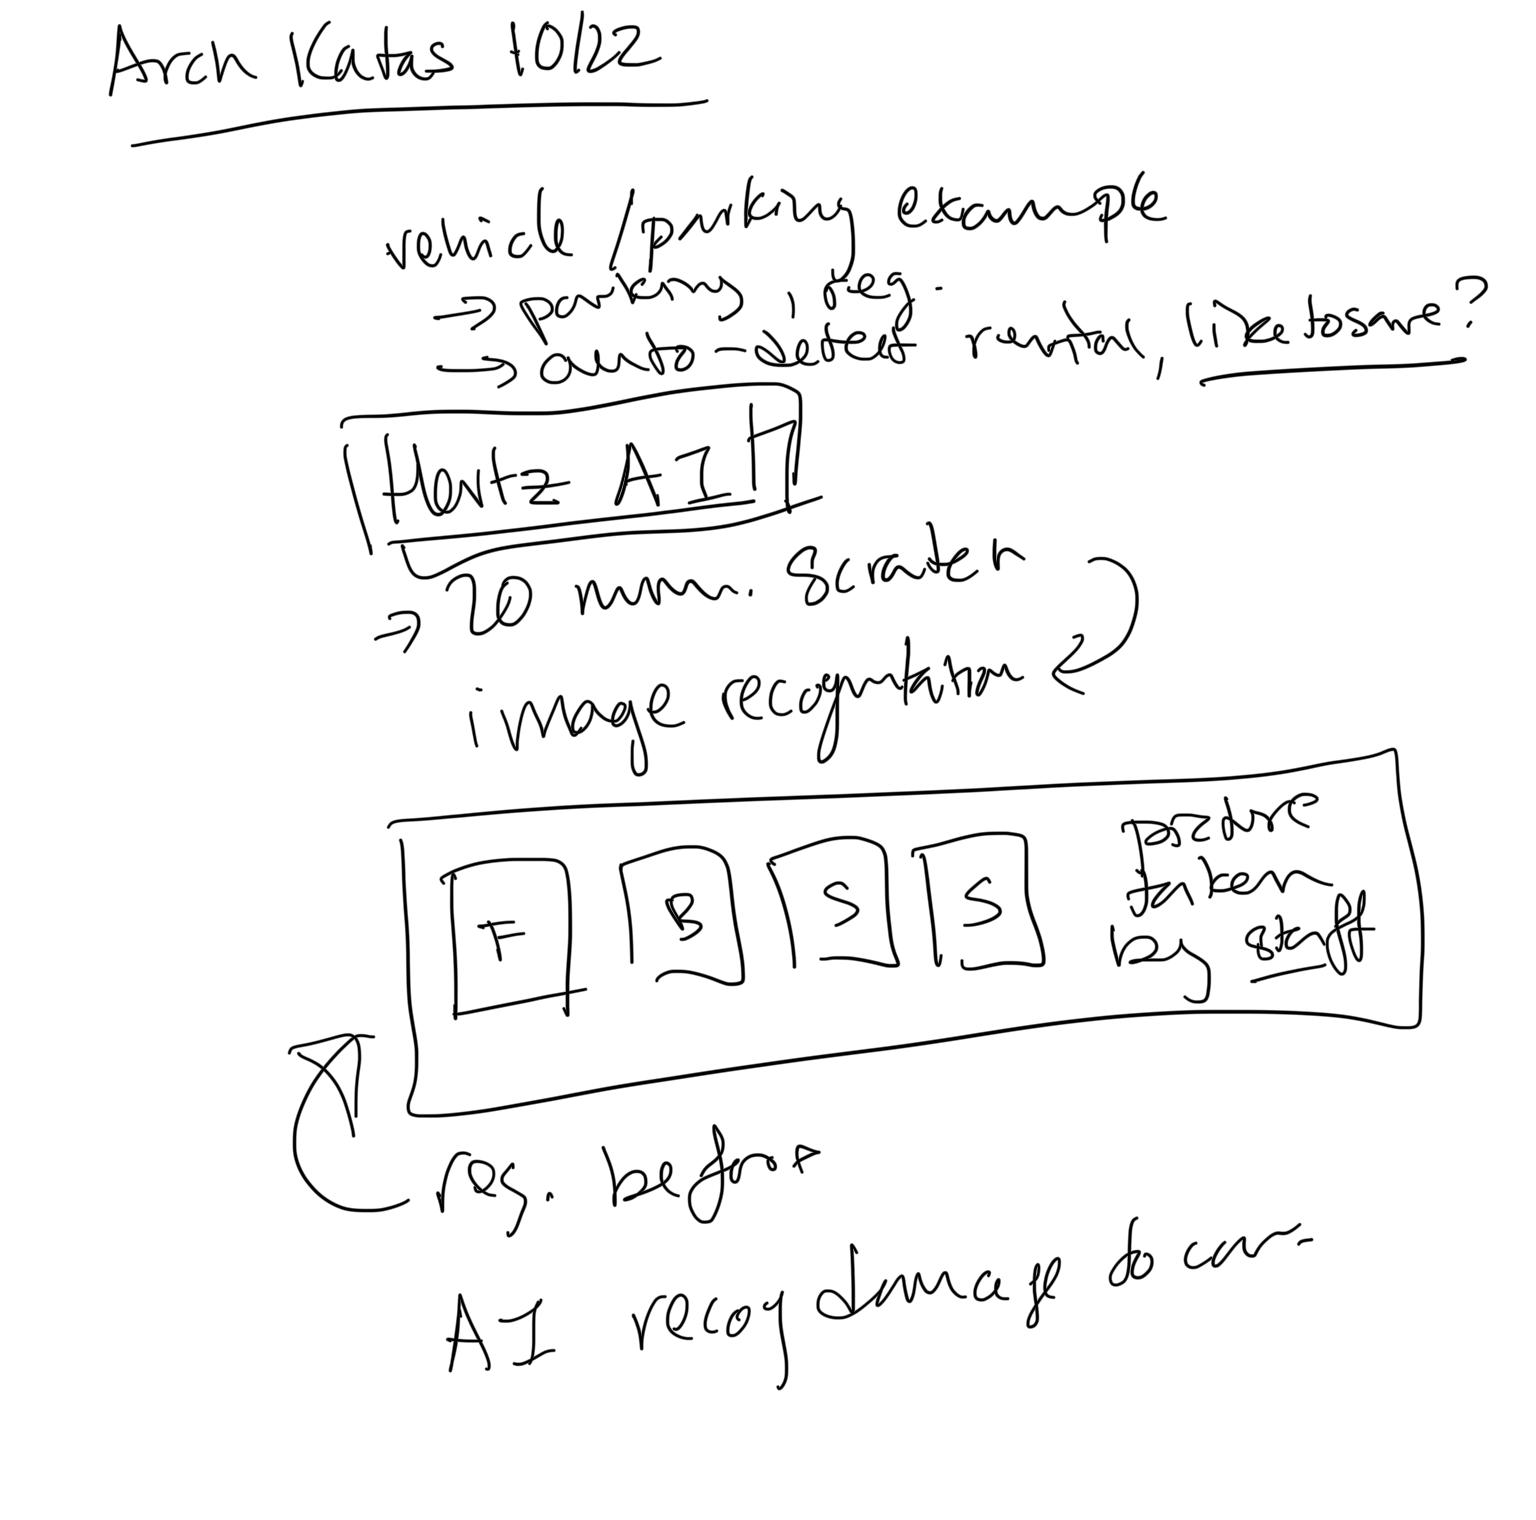 Arch Katas 10/22
vehicle / parking example
→ parking, reg.
→ auto-detect rental, like to save?
Hertz AI
→ 20 mm. scratch
image recognitation
F B S S
picture
taken
by staff
reg. before
AI recog damage to car.